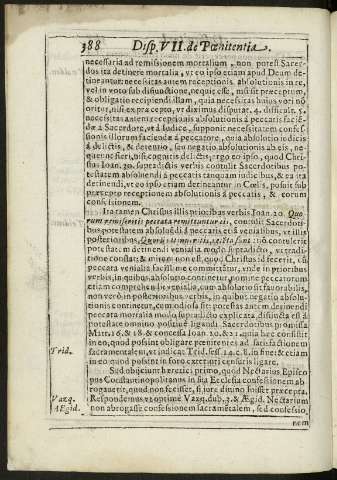 388 Disp. VII. de Pœnitentia.
necessaria ad remissionem mortalium, non potest Sacerdos
ita detinere mortalia, vt eo ipso etiam apud Deum detineantur:
necessitas autem receptionis absolutionis in re,
vel in voto sub disiunctione, nequit esse, nisi sit præceptum,
& obligatio recipiendi illam, quia necessitas huius voti non
oritur, nisi ex præcepto, vt diximus disputat. 4. difficult. 5.
necessitas autem receptionis absolutionis à peccatis faciendæ
à Sacerdote, vt à Iudice, supponit necessitatem confessionis
illorum faciendæ à peccatore, quia absolutio iudicis
à delictis, & detentio, seu negatio absolutionis ab eis, nequeunt
fieri, nisi cognitis delictis; ergo eo ipso, quod Christus
Ioan. 20. supradictis verbis contulit Sacerdotibus potestatem
absoluendi à peccatis tanquam iudicibus, & ea ita
detinendi, vt eo ipso etiam detineantur in Cœlis, posuit sub
præcepto receptionem absolutionis à peccatis, & eorum
confessionem.
Ita tamen Christus illis prioribus verbis Ioan. 20. Quorum
remiseritis peccata remittuntur eis, contulit Sacerdotibus
potestatem absoluendi à peccatis etiã venialibus, vt illis
posterioribus, non contulerit
potestatem detinendi venialia modo supradicto, vt ex traditione
constat: & mirum non est, quod Christus id fecerit, cũ
peccata venialia facilime committantur, vnde in prioribus
verbis, in quibus absolutio continetur, nomine peccatorum
etiam comprehendit venialia, cum absolutio sit fauorabilis,
non verò in posterioribus verbis, in quibus negatio absolutionis
continetur, quæ odiosa sit potestas autem detinendi
peccata mortalia modo supradicto explicata, distincta est à
potestate omnino positiue ligandi Sacerdotibus promissa
Matt. 16. & 18. & concessa Ioan. 20. & 21. quia hæc consistit
in eo, quod possint obligare pœnitentes ad satisfactionem
Trid. sacramentalem, vt indicat Trid. sess. 14. c. 8. in fine: & etiam
in eo quod possint in foro exteriori censuris ligare.
Sed obijciunt hæretici primo, quod Nectarius Episcopus
Constantinopolitanus in sua Ecclesia confessionem abrogauit,
quod non fecisset, si iure diuino fuisset præcepta.
Vazq. Respondemus vt optime Vazq. dub. 3. & Ægid. Nectarium
Ægid. non abrogasse confessionem sacramẽtalem, sed confessionem